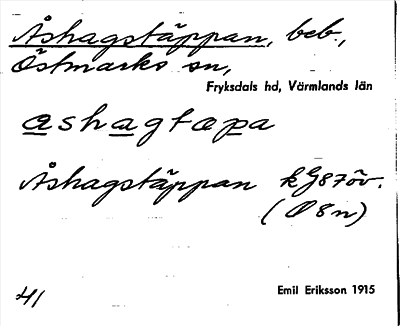 Åshagstäppan, beb.,
Östmarks sn,
Fryksdals hd, Värmlands län
ashagtapa
Åshagstäppan kG87öv.
(Ö8n)
41
Emil Eriksson 1915